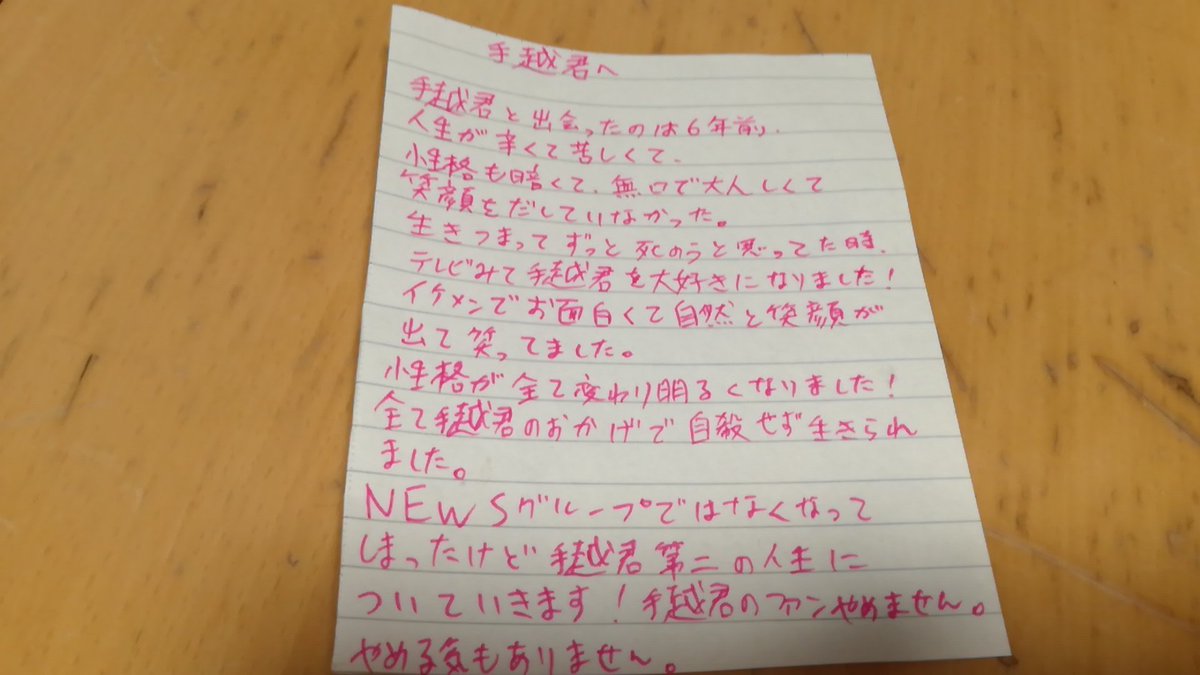 手越君へ
手越君と出会ったのは6年前、
人生が辛くて苦しくて、
性格も暗くて、無口で大人しくて
笑顔をだしていなかった。
生きつまってずっと死のうと思ってた時、
テレビみて手越君を大好きになりました!
イケメンでお面白くて自然と笑顔が
出て笑ってました。
性格が全て変わり明るくなりました!
全て手越君のおかげで自殺せず生きられ
ました。
NEWSグループではなくなって
しまったけど手越君第二の人生に
ついていきます!手越君のファンやめません。
やめる気もありません。